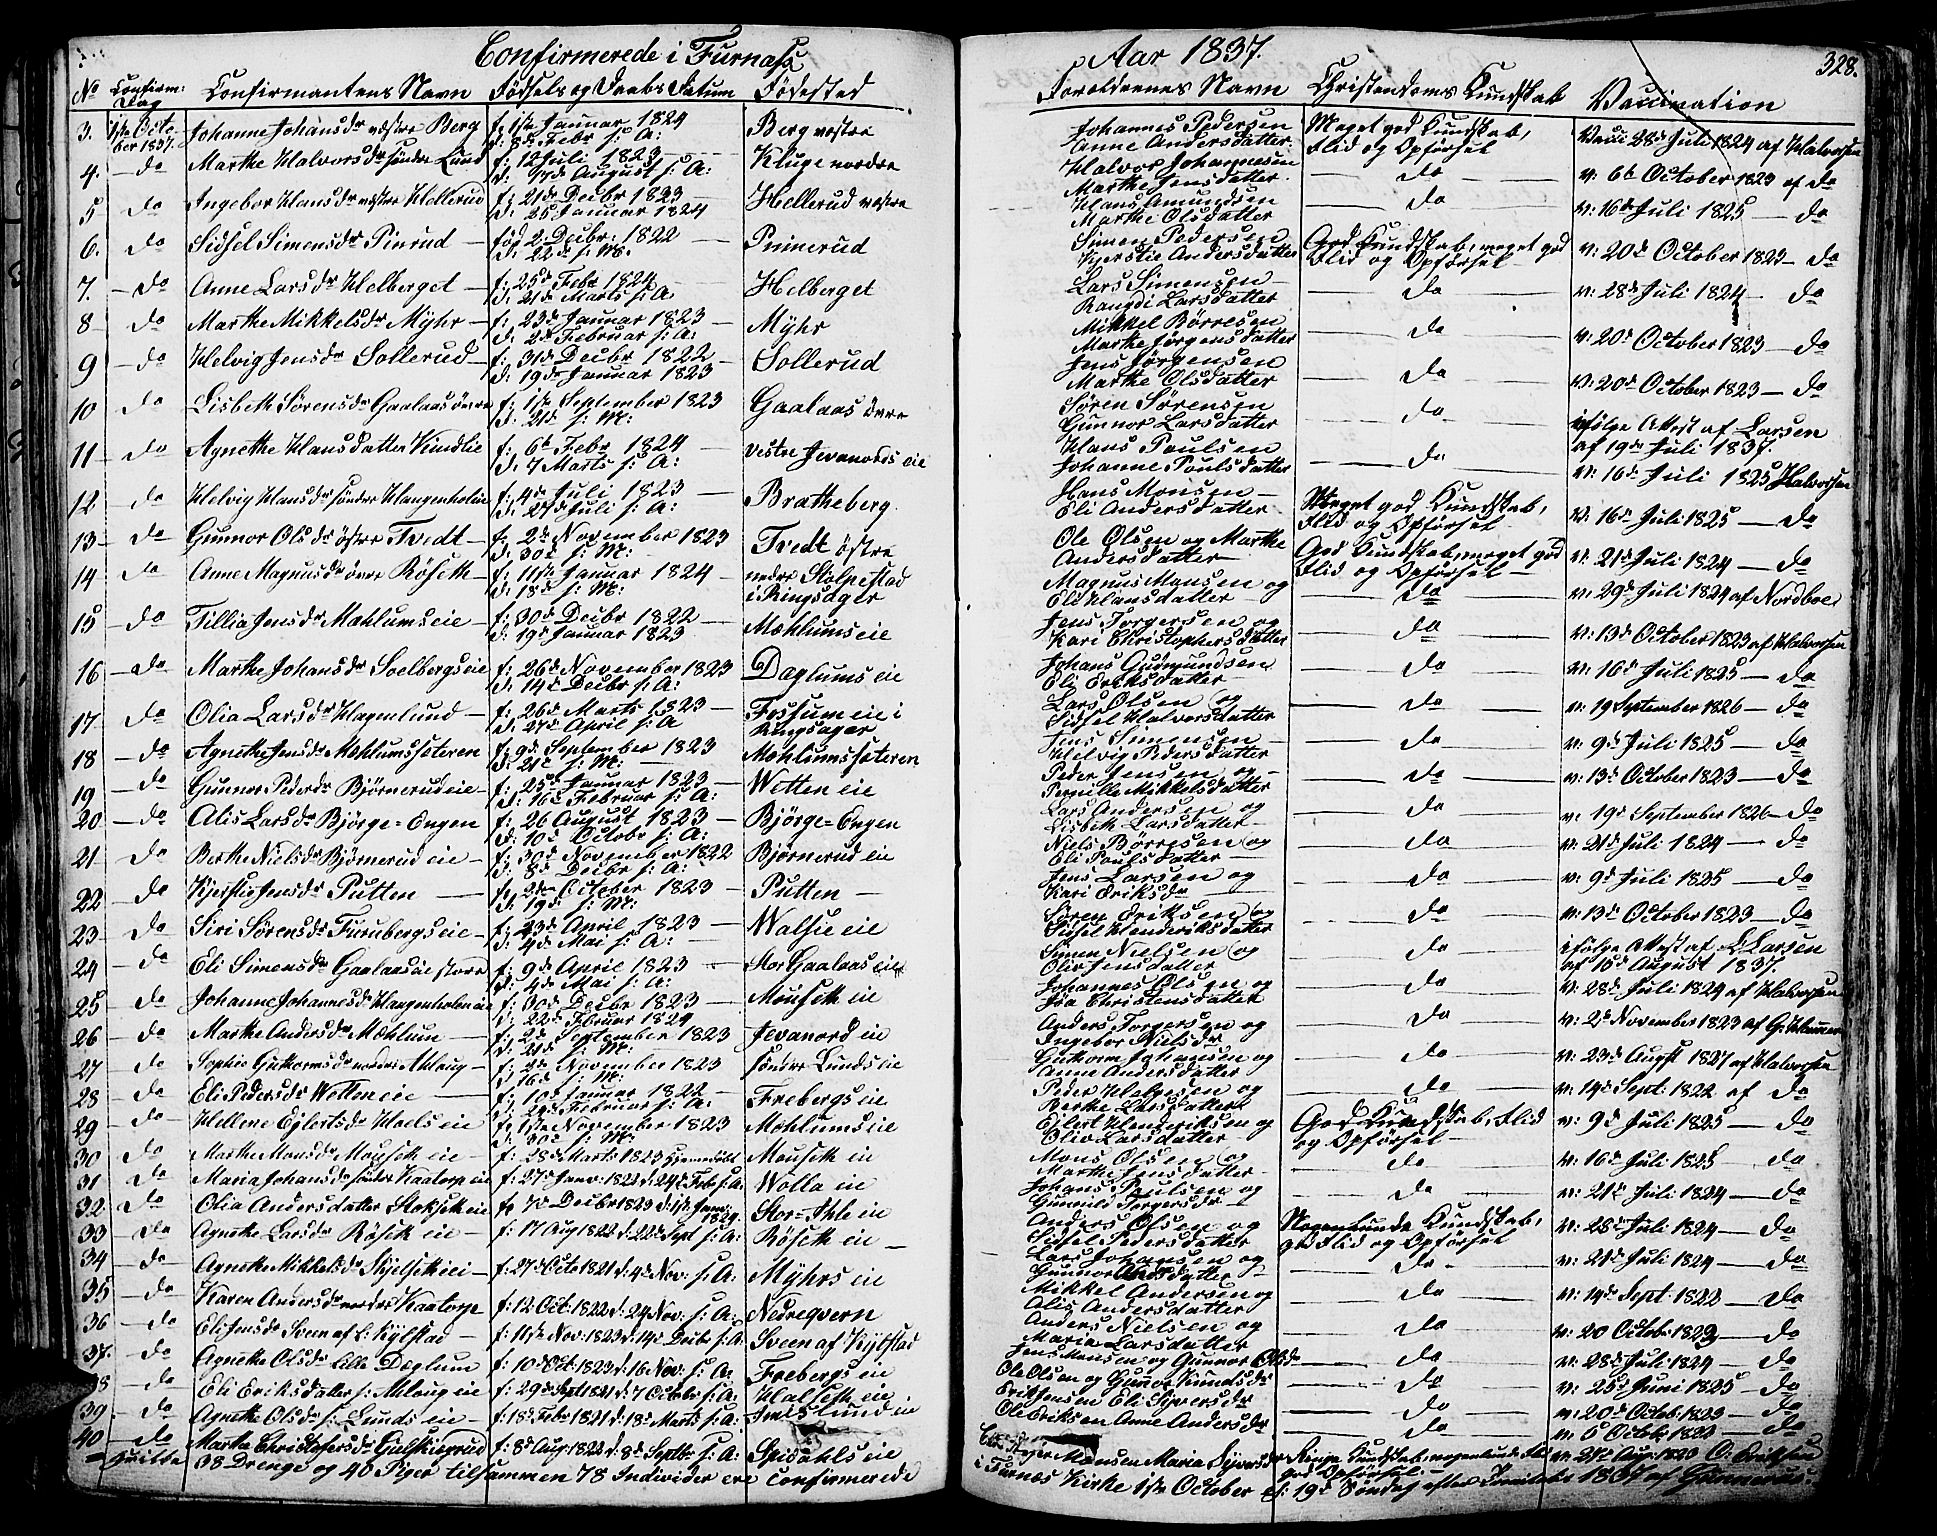 Confirmerede i Furnæss
Aar 1837.
328.
No Confirm: Dag Confirmantens Navn Fødsels og Daabs Datum Fødested
Forældrenes Navn Christendoms Kundskab Vaccination
3. 1ste October 1837. Johanne Johansdr vestre Berg f: 1ste Januar 1824 d: 8de Febr s: A: Berg vestre
Johannes Pedersen Anne Andersdatter Meget god Kundskab, Flid og Opførsel Vacc: 28de Juli 1824 af Halvorsen
4. do Marthe Halvorsdr søndre Lund f: 12 Juli 1823 d: 17de August s: A: Kluge nordre
Halvor Johannesen Marthe Jensdatter do v: 6te October 1823 af do
5 do Ingebor Hansdr vestre Hellerud f: 21de Decbr 1823 d: 25 Januar 1824 Hellerud vestre
Hans Amundsen Marthe Olsdatter do v: 16de Juli 1825 do
6. do Sidsel Simensdr Pinrud fød 2 Decbr: 1822 d: 22de s: M: Pinnerud
Simen Pedersen Kjerstie Andersdatter God Kundskab, meget god Flid og Opførsel v: 20de October 1823 do
7. do Anne Larsdr Helberget f: 25de Febr 1824 d: 21de Marts s: A Helberget
Lars Simensen Rangdi Larsdatter do v: 28de Juli 1824 do
8 do Marthe Mikkelsdr Myhr f: 23de Januar 1823 d: 2de Februar s: A: Myhr
Mikkel Børresen Marthe Jørgensdatter do v: 20de October 1823 do
9 do Helvig Jensdr Sollerud f: 31de Decbr 1822 d: 19de Januar 1823 Sollerud
Jens Jørgensen Marthe Olsdatter do v: 20de October 1823 do
10 do Lisbeth Sørensdr Gaalaas øvre f: 1ste September 1823 d: 21de s: M: Gaalaas øvre
Søren Sørensen Gunnor Larsdatter do ifølge Attest af Larsen af 19de Juli 1837.
11 do Agnethe Hansdatter Kindlie f: 6te Febr 1824 d: 7 Marts s: A: vestre Jevanords eie
Hans Paulsen Johanne Paulsdatter do v: 16de Juli 1825 Halvorsen
12 do Helvig Hansdr søndre Hangenholen f: 4de Juli 1823 d: 27de Juli s: A: Bratheberg
Hans Monsen Eli Andersdatter Meget god Kundskab, Flid og Opførsel v: 16de Juli 1825 do
13 do Gunnor Olsdr østre Tvedt f: 2de November 1823 d: 30te s: M: Tvedt østre
Ole Olsen og Marthe Andersdatter God Kundskab, meget god Flid og Opførsel v: 21de Juli 1824 do
14 do Anne Magnusdr øvre Røseth f: 11te Januar 1824 d: 18de s: M: nedre Stolpestad i Ringsager
Magnus Monsen og Eli Hansdatter do v: 29de Juli 1824 af Nordboe
15 do Tillia Jensdr Mæhlums eie f: 30te Decbr 1822 d: 19de Januar 1823 Mæhlums eie
Jens Torgersen og Kari Christophersdatter do v: 13de October 1823 af Halvorsen
16 do Marthe Johansdr Soelbergs eie f: 26de November 1823 d: 14de Decbr s: A: Daglums eie
Johans Gudmundsen Eli Eriksdatter do v: 16de Juli 1825 do
17. do Olia Larsdr Hagenlund f: 26de Marts 1823 d: 27de April s: A Fossum eie i Ringsager
Lars Olsen og Sidsel Halvorsdatter do v: 19 September 1826 do
18 do Agnethe Jensdr Mæhlumssæteren f: 9de September 1823 d: 21de s: M: Mæhlumssæteren
Jens Simensen Helvig Pedersdatter do v: 9de Juli 1825 do
19 do Gunnor Pedersdr Bjørnerud eie f: 25de Januar 1823 d: 16de Februar s: A: Wetten eie
Peder Jensen og Pernille Mikkelsdatter do v: 13de October 1823 do
20 do Alis Larsdr Bjørge-Engen f: 26 August 1823 d: 10de Octobr s: A: Bjørge-Engen
Lars Andersen og Lisbeth Larsdatter do v: 19de September 1826 do
21 do Berthe Nielsdr Bjørnerud eie f: 30te November 1822 d: 8de Decbr s: A: Bjørnerud eie
Niels Børresen og Eli Paulsdatter do v: 21de Juli 1824 do
22 do Kjerstie Jensdr Putten f: 2den October 1823 d: 19de s: M: Putten
Jens Larsen og Kari Eriksdr do v: 9de Juli 1825 do
23 do Siri Sørensdr Furubergs eie f: 23de April 1823 d: 4de Mai s: A: Walsie eie
Søren Eriksen og Sidsel Hendriksdatter do v: 13de October 1823 do
24 do Eli Simensdr Gaalaas eie store f: 9de April 1823 d: 4de Mai s: A: Stor Gaalaas eie
Simen Nielsen og Oliv Jensdatter do ifølge Attest af L. Larsen af 15de August 1837.
25 do Johanne Johannesdr Hangenholen eie f: 30te Decbr 1823 d: 22de Februar 1824 Mouseth eie
Johannes Olsen og Pia Christensdatter do v: 28de Juli 1824 af Halvorsen
26 do Marthe Andersdr Mæhlum f: 2de September 1823 d: 21de s: M: Jevanord eie
Anders Torgersen og Ingebor Nielsdr do v: 2de November 1823 af G. Hammer
27 do Sophie Guthormsdr nordre Alhaug f: 2de November 1823 d: 16de s: M: søndre Lunds eie
Guthorm Johansen og Anne Andersdatter do v: 23de Augst 1827 af Halvorsen
28 do Eli Pedersdr Wetten eie f: 10de Januar 1822 d: 24de Februar s: A: Frebergs eie
Peder Helgesen og Berthe Larsdatter do v: 14de Sept: 1822 af do
29 do Hellene Eglertsdr Hoels eie f: 1ste November 1823 d: 30te s: M: Mæhlums eie
Eglert Hendriksen og Oliv Larsdatter God Kundskab, Flid og Opførsel v: 9de Juli 1825 do
30 do Marthe Monsdr Mouseth eie f: 28de Marts 1823 hjemmedøbt Mouseth eie
Mons Olsen og Marthe Jensdatter do v: 16de Juli 1825 do
31 do Maria Johansdr søndre Kaatorp eie f: 27de Janr: 1822 d: 24de Febr s: A: Wolla eie
Johans Paulsen og Gunnild Torgersdr do v: 21de Juli 1824 do
32. do Olia Andersdatter Stokseth eie f: 7de Decbr 1823 d: 1ste Janr: 1824. Stor-Ihle eie
Anders Olsen og Sidsel Pedersdatter Nogenlunde Kundskab, god Flid og Opførsel v: 28de Juli 1824 do
33 do Agnethe Larsdr Røseth eie f: 17 Aug 1822 d: 22de Sept s: A: Røseth eie
Lars Johansen og Gunnor datter do v: 21de Juli 1824 do
34 do Agnethe Mikkelsdr Skjelseth eie f: 27de Octo 1821 d: 4de Nov: s: A: Myhrs eie
Mikkel Andersen og Alis Andersdatter do v: 14de Sept: 1822 do
35 do Karen Andersdr nordre Kaatorp f: 12 Oct: 1822 d: 24 Nov: s: A: Nedregvern
Anders Nielsen og Maria Larsdatter do v: 20 Octobr: 1823 do
36 do Eli Jensdr Sveen af L: Kylstad f: 11te Nov: 1823 d: 14de Decbr s: A: Sveen af Kylstad
Jens Monsen og Gunnor Olsdr do v: 28de Juli 1824 do
37. do Agnethe Olsdr lille Dæglum f: 10de Oct: 1823 d: 16 Nov: s: A: Frebergs eie
Ole Olsen og Gunor Knudsdr do v: 25de Juni 1825 do
38 do Eli Eriksdatter s: Alhaug eie f: 29de Sept 1821 d: 7 Octobr s: A: Halseth eie
Erik Jensen Eli Siversdr do v: 20de Octob: 1823 do
39 do Agnethe Olsdr s: Lunds eie f: 18de Febr 1821 d: 18de Marts s: A: Imislund eie
Ole Eriksen Anne Andersdr do v: 6 Octobr 1823 do
40 do Marthe Christophersdr Gjelskisgrud f: 8de Aug: 1822 d: 8de Septbr s: A: Spidahls eie
Mansen Maria Siversdr Ringe Kundskab, nogenlunde Flid god Opførsel v: 21de Aug: 1823 O: Eriksen
38 Drenge og 40 Piger tilsammen 78 Individer ere Confirmerede
i Furnes Kirke 1ste October s: 19de Søndag efter Trinitatis 1837 af